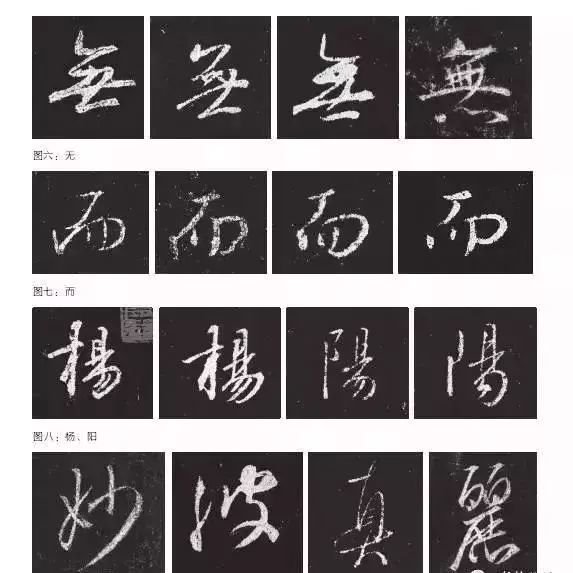 無 無 無 無
图六：无
而 而 而 而
图七：而
楊 楊 陽 陽
图八：杨、阳
妙 波 真 麗